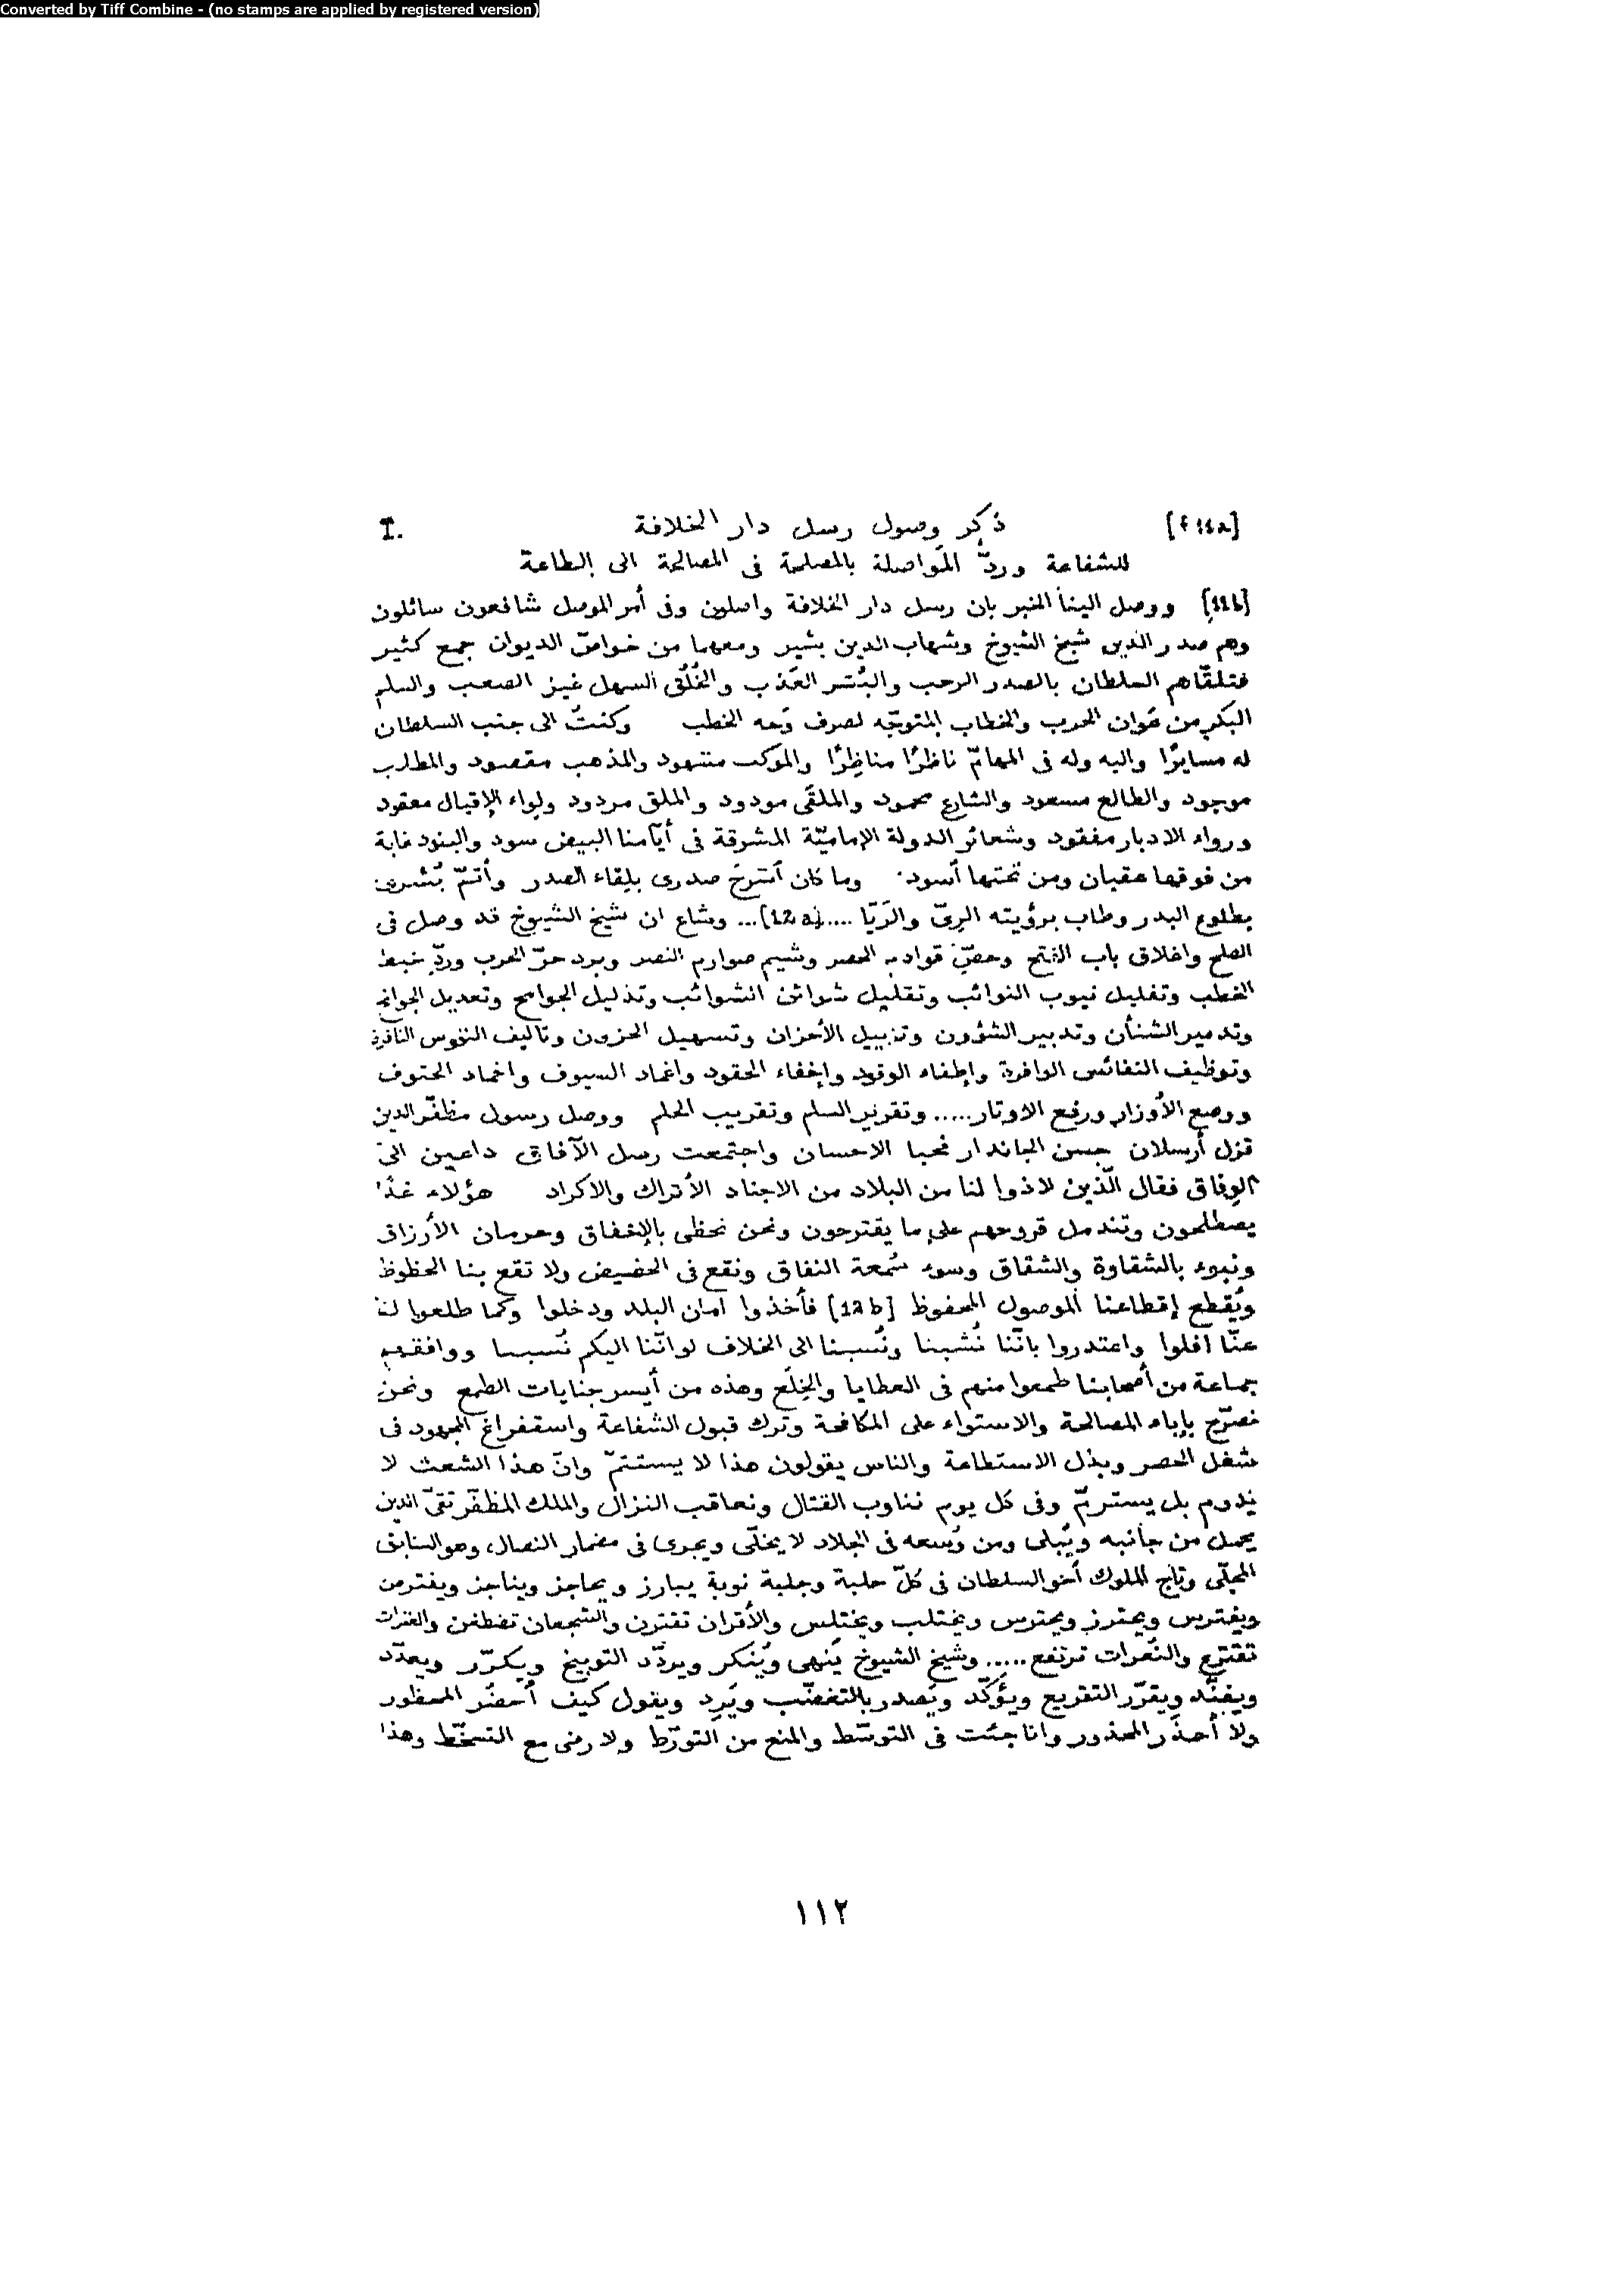 Converted by Tiff Combine - (no stamps are applied by registered version)
[f 11a] ذكر وصول رسل دار الخلافة I.
للشفاعة وردّ المواصلة بالمصلحة فى المصالحة الى الطاعة
[11b] ووصل الينا الخبر بان رسل دار الخلافة واصلون وفى أمر الموصل شافعون سائلون
وهم صدر الدين شيخ الشيوخ وشهاب الدين بشير ومعهما من خواصّ الديوان جمع كثير
فتلقّاهم السلطان بالصدر الرحب والبُشر العَذب والخُلُق السهل غير الصعب والسلم
البكر من عَوان الحرب والخطاب المتوجّه لصرف وَجه الخطب وكنتُ الى جنب السلطان
له مسايرًا واليه وله فى المهامّ ناظرًا مناظِرًا والموكب مشهود والمذهب مقصود والمطلب
موجود والطالع مسعود والشارع محمود والملقَى مودود والملق مردود ولواء الإقبال معقود
ورواء الادبار مفقود وشعائر الدولة الإماميّة المشرقة فى أيّامنا البيض سود والبنود غابة
من فوقها عقبان ومن تحتها أسود. وما كان أشرحَ صدرى بلقاء الصدر وأتمّ بُشرى
بطلوع البدر وطاب برؤيته الرِىّ والرَيّا ....(12a)... وشاع ان شيخ الشيوخ قد وصل فى
الصلح واغلاق باب الفتح وحصّ قوادم الحصر وشيم صوارم النصر وبرد حرّ الحرب وردّ خبط
الخطب وتفليل نيوب النوائب وتقليل شوائن الشوائب وتذليل الجوامح وتعديل الجوانح
وتدمير الشنأن وتدبير الشؤون وتزييل الأحزان وتسهيل الحزون وتأليف النفوس النافرة
وتوظيف النفائس الوافرة وإطفاء الوقود وإخفاء الحقود واغماد السيوف واخماد الحتوف
ووضع الأوزار ورفع الاوتار..... وتقرير السلم وتقريب الحلم ووصل رسول مظفّر الدين
قزل أرسلان حسن الجاندار فحبا الاحسان واجتمعت رسل الآفاق داعين الى
الوِفاق فقال الّذين لاذوا لنا من البلاد من الاجناد الأتراك والاكراد هؤلاء غدًا
يصطلحون وتندمل قروحهم على ما يقترحون ونحن نحظى بالإخفاق وحرمان الأرزاق
ونبوء بالشقاوة والشقاق وسوء سُمعة النفاق ونقع فى الحضيض ولا تقع بنا الحظوظ
ويُقطع إقطاعنا الموصول المحفوظ [12b] فأخذوا امان البلد ودخلوا وكما طلعوا لنا
عنّا افلوا واعتذروا بانّنا نُشبنا ونُسبنا الى الخلاف لو انّنا اليكم نُسبنا ووافقهم
جماعة من أصحابنا طمعوا منهم فى العطايا والخِلَع وهذه من أيسر جنايات الطمع ونحن
نصرّح بإباء المصالحة والاستواء على المكافحة وترك قبول الشفاعة واستفراغ المجهود فى
شغل الحصر وبذل الاستطاعة والناس يقولون هذا لا يستتمّ وانّ هذا الشعث لا
يدوم بل يسترمّ وفى كل يوم نناوب القتال ونعاقب النزال والملك المظفّر تقىّ الدين
يحمل من جانبه ويُبلى ومن وُسعه فى الجلاد لا يخلّى ويجرى فى مضمار النصال، وهو السابق
المجلّى وتاج الملوك أخو السلطان فى كلّ حلبة وجلبة نوبة يبارز ويحاجز ويناجز ويفترص
ويفترس ويحترز ويحترس ويختلب ويختلس والأقران تقترن والشجعان تضطغن والغزات
تقترع والنُعرات ترتفع..... وشيخ الشيوخ يَنهى ويُنكر ويردّد التوبيخ ويكرّر ويعدّد
ويفنّد ويقرّر التقريع ويؤكّد ويَصدر بالتغضّب ويَرِد ويقول كيف أحضُر المحظور
ولا أحذَر المحذور وانا جئت فى التوسّط والمنع من التورّط ولا رضى مع التسخّط وهذا
١١٢